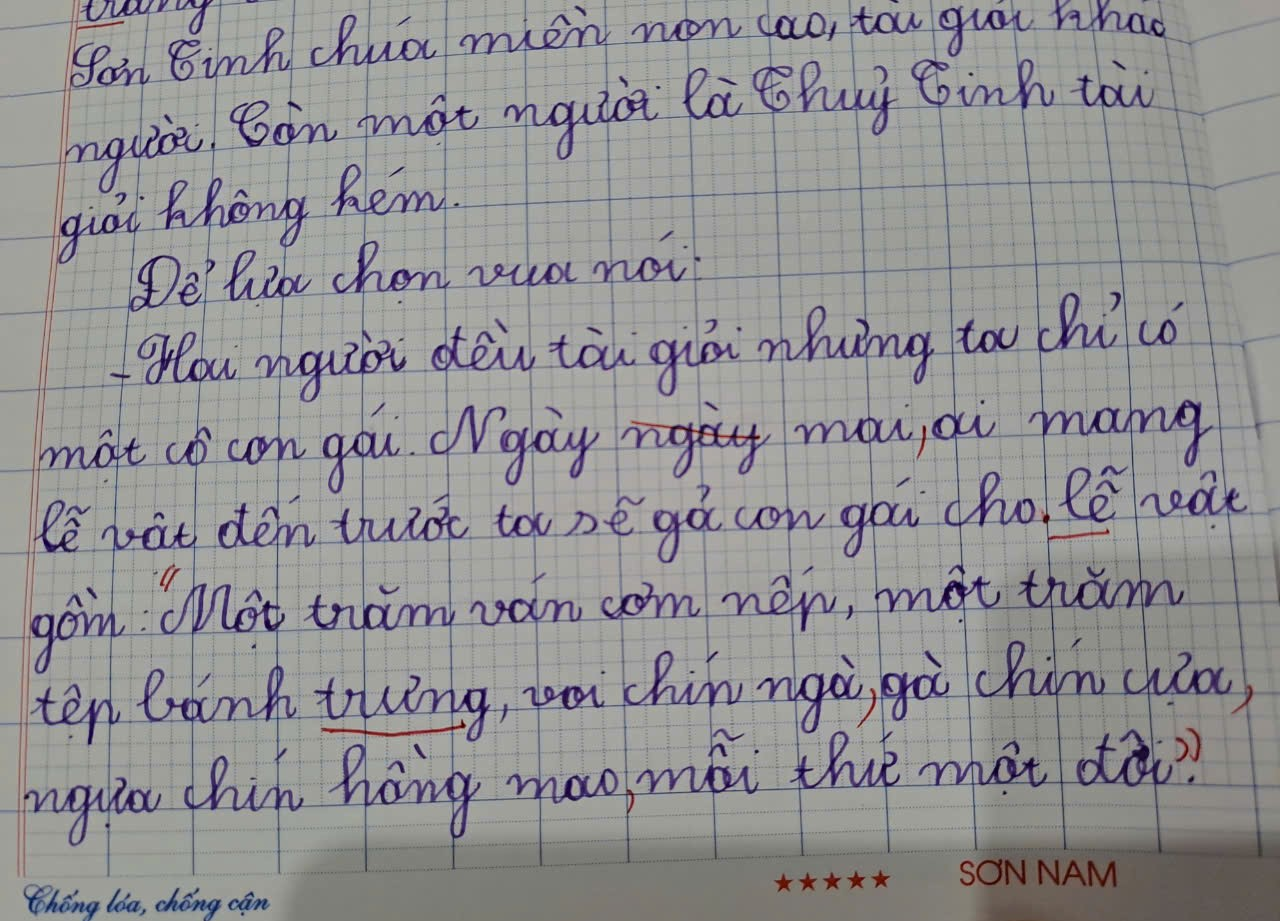 trưng
Sơn Tinh chúa miền non cao, tài giỏi khác
người. Còn một người là Thuỷ Tinh tài
giỏi không kém.
Để lựa chọn vua nói:
- Hai người đều tài giỏi nhưng ta chỉ có
một cô con gái. Ngày ngày mai, ai mang
lễ vật đến trước ta sẽ gả con gái cho. lễ vật
gồm: "Một trăm ván cơm nếp, một trăm
tệp bánh trưng, voi chín ngà, gà chín cựa,
ngựa chín hồng mao, mỗi thứ một đôi".
Chống lóa, chống cận
★★★★★ SƠN NAM